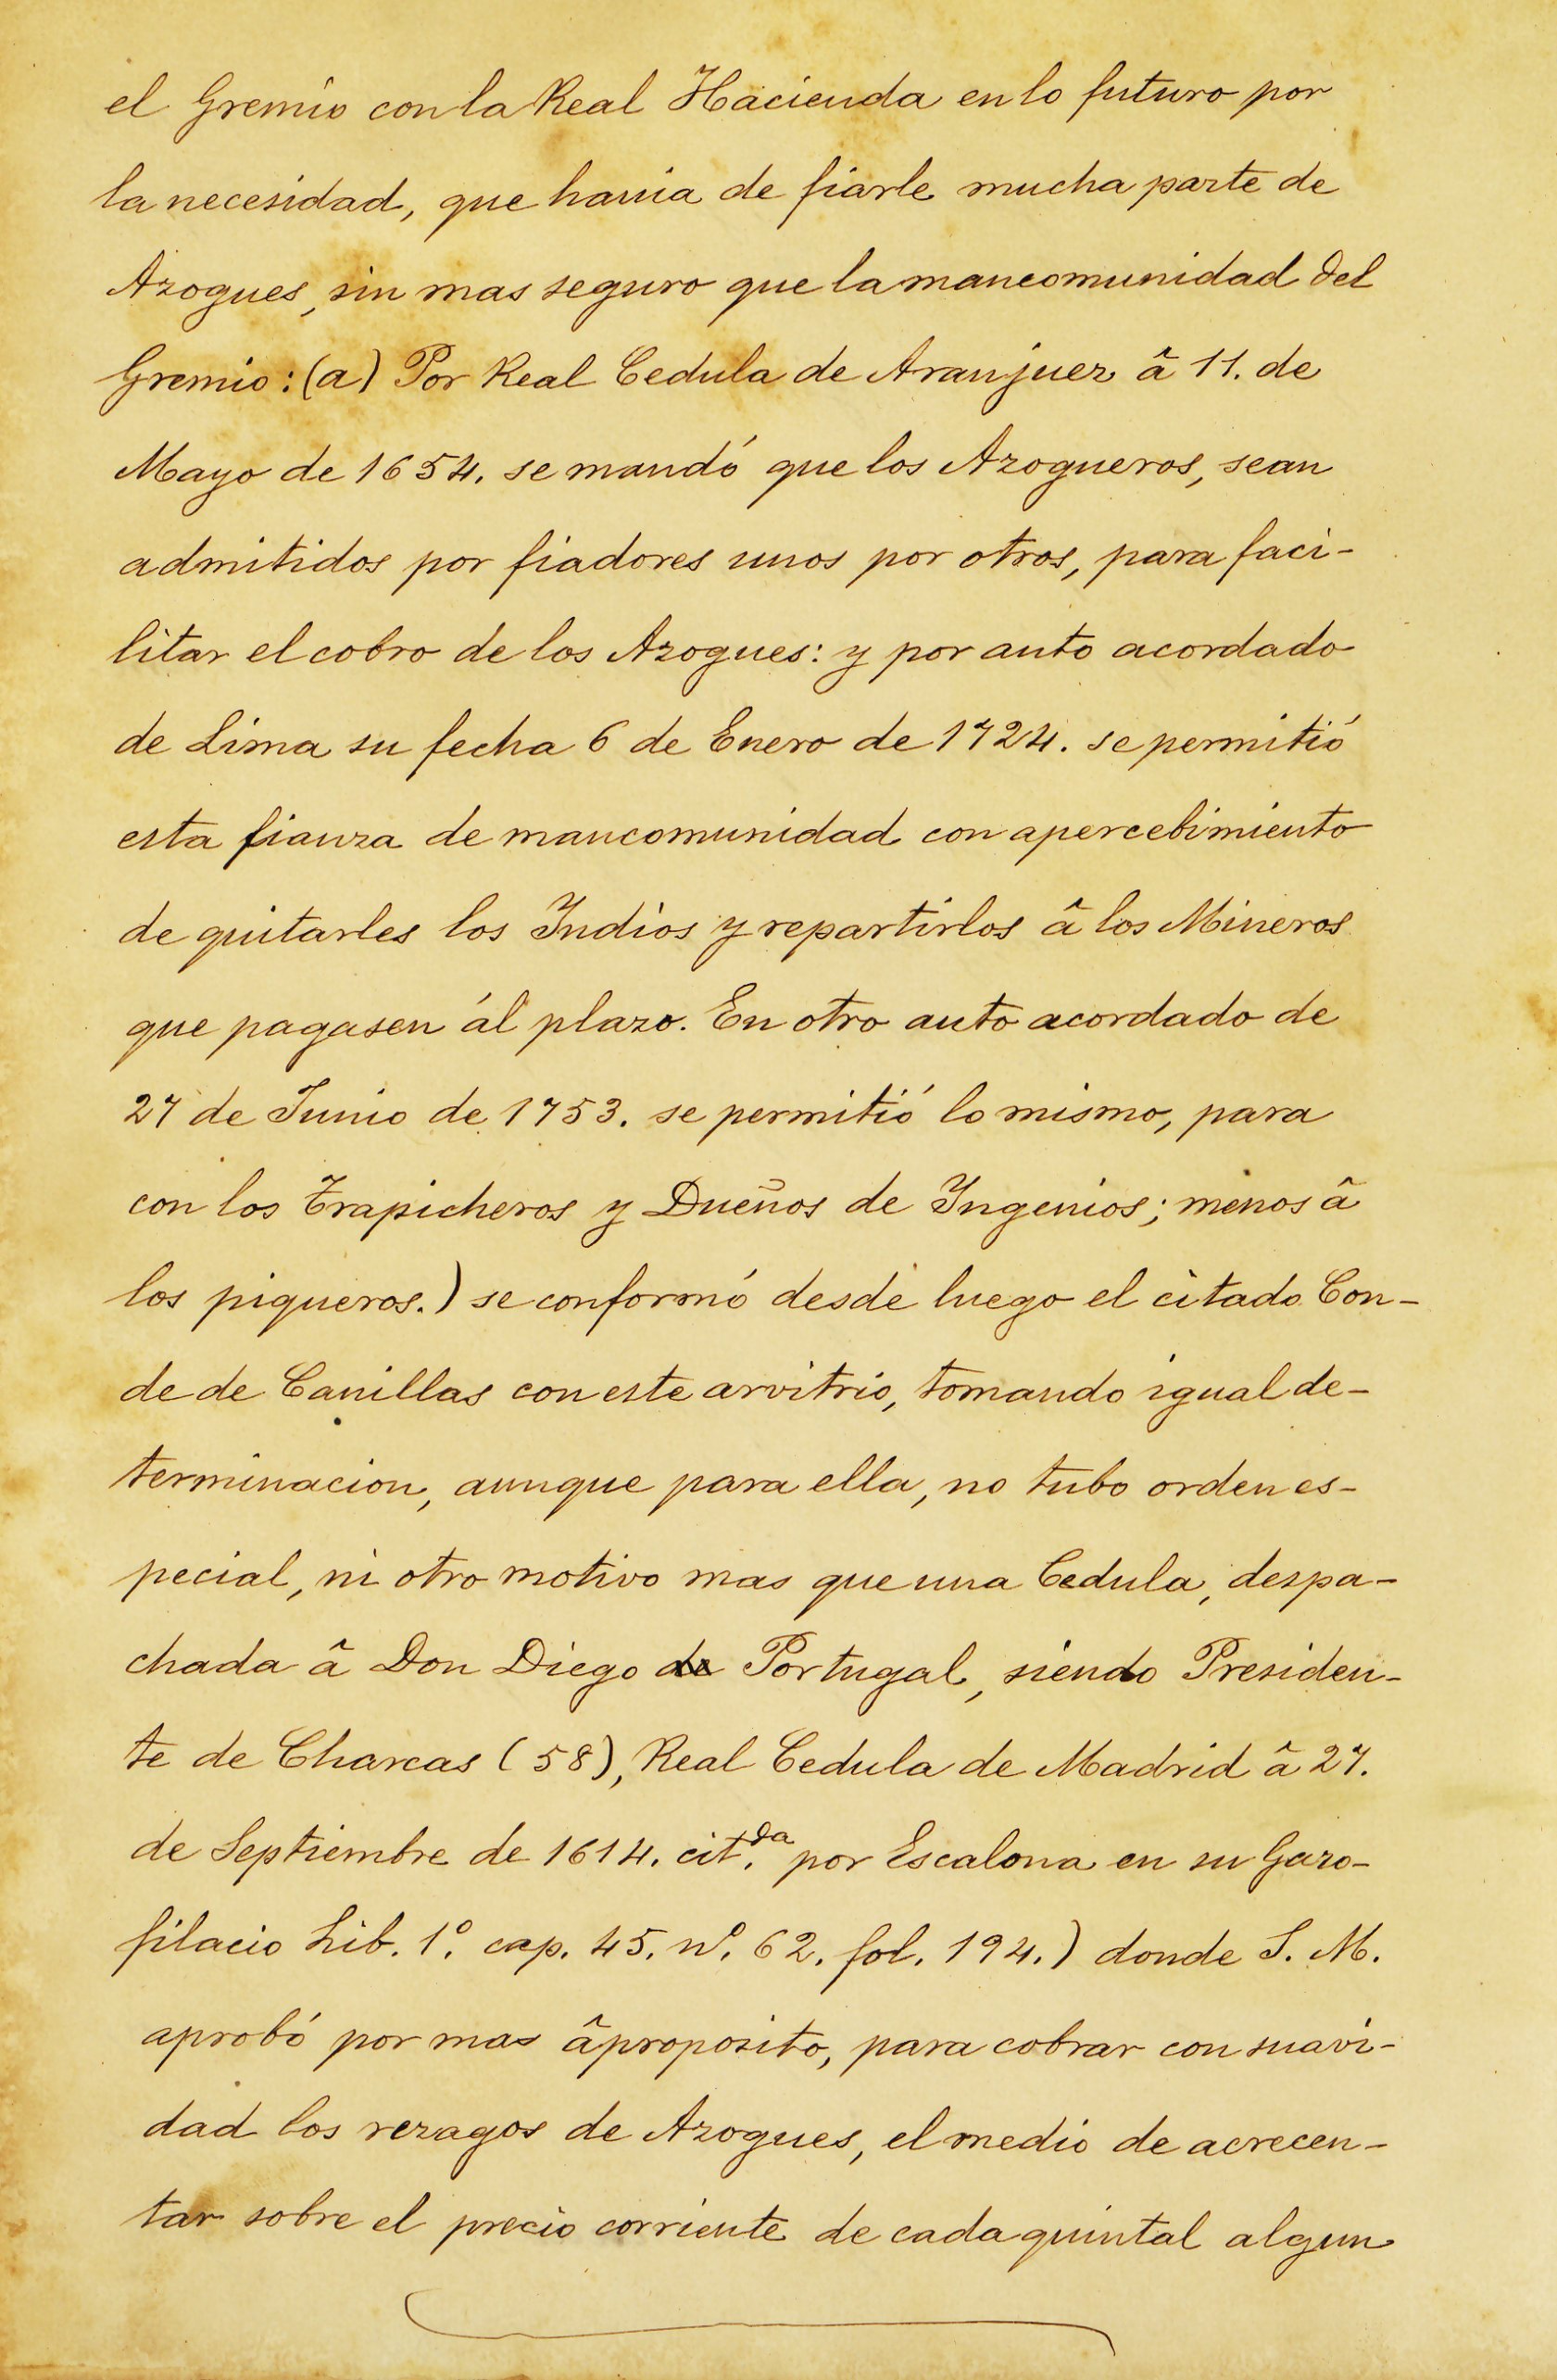 el Gremio con la Real Hacienda en lo futuro por
la necesidad, que havia de fiarle mucha parte de
Azogues, sin mas seguro que la mancomunidad del
Gremio: (a) Por Real Cedula de Aranjuez â 11. de
Mayo de 1654. se mandó que los Azogueros, sean
admitidos por fiadores unos por otros, para faci-
litar el cobro de los Azogues: y por auto acordado
de Lima su fecha 6 de Enero de 1724. se permitió
esta fianza de mancomunidad con apercebimiento
de quitarles los Indios y repartirlos â los Mineros
que pagasen ál plazo. En otro auto acordado de
27 de Junio de 1753. se permitió lo mismo, para
con los Trapicheros y Dueños de Ingenios; menos â
los piqueros.) se conformó desde luego el citado Con-
de de Canillas con este arvitrio, tomando igual de-
terminacion, aunque para ella, no tubo orden es-
pecial, ni otro motivo mas que una Cedula, despa-
chada â Don Diego de Portugal, siendo Presiden-
te de Charcas (58), Real Cedula de Madrid â 27.
de Septiembre de 1614. cit.da por Escalona en su Gazo-
filacio Lib. 1º. cap. 45. nº. 62. fol. 194.) donde S. M.
aprobó por mas âproposito, para cobrar con suavi-
dad los rezagos de Azogues, el medio de acrecen-
tar sobre el precio corriente de cada quintal algun